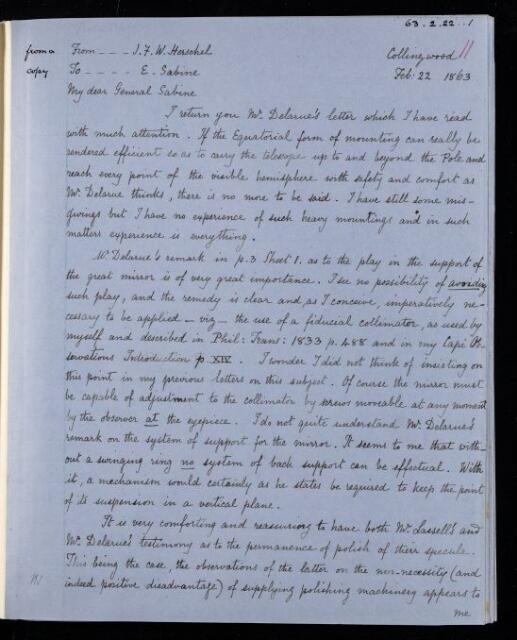 63.2.22..1
from a From _ _ _ J. F. W. Herschel
copy To _ _ _ _ E. Sabine
Collingwood 11
Feb: 22 1863
My dear General Sabine
I return you Mr. Delarue's letter which I have read
with much attention. If the Equatorial form of mounting can really be
rendered efficient so as to carry the telescope up to and beyond the Pole and
reach every point of the visible hemisphere with safety and comfort as
Mr. Delarue thinks, there is no more to be said. I have still some mis-
givings but I have no experience of such heavy mountings and in such
matters experience is everything.
Mr. Delarue's remark in p. 3 Sheet 1. as to the play in the support of
the great mirror is of very great importance. I see no possibility of avoiding
such play, and the remedy is clear and, as I conceive, imperatively ne-
cessary to be applied – viz – the use of a fiducial collimator, as used by
myself and described in Phil: Trans: 1833 p. 488 and in my Cape Ob-
servations Introduction p XIV. I wonder I did not think of insisting on
this point in my previous letters on this subject. Of course the mirror must
be capable of adjustment to the collimator by screws moveable at any moment
by the observer at the eyepiece. I do not quite understand Mr. Delarue's
remark on the system of support for the mirror. It seems to me that with-
out a swinging ring no system of back support can be effectual. With
it, a mechanism would certainly as he states be required to keep the point
of its suspension in a vertical plane.
It is very comforting and reassuring to have both Mr. Lassell's and
Mr. Delarue's testimony as to the permanence of polish of their specula.
This being the case, the observations of the latter on the non-necessity (and
indeed positive disadvantage) of supplying polishing machinery appears to
me